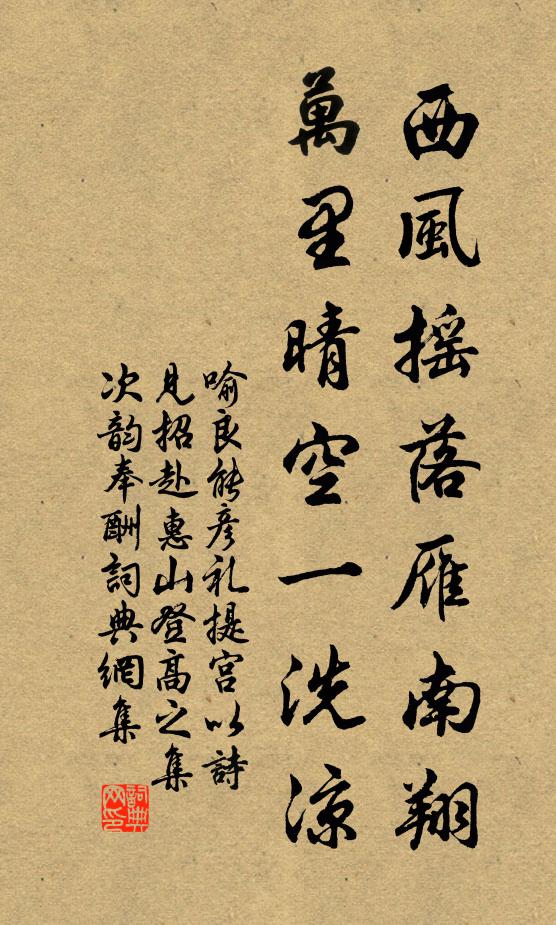 西風摇落雁南翔
萬里晴空一洗凉
喻良能彦礼提宫以詩
見招赴惠山登高之集
次韵奉酬詞典網集
詞典
网印